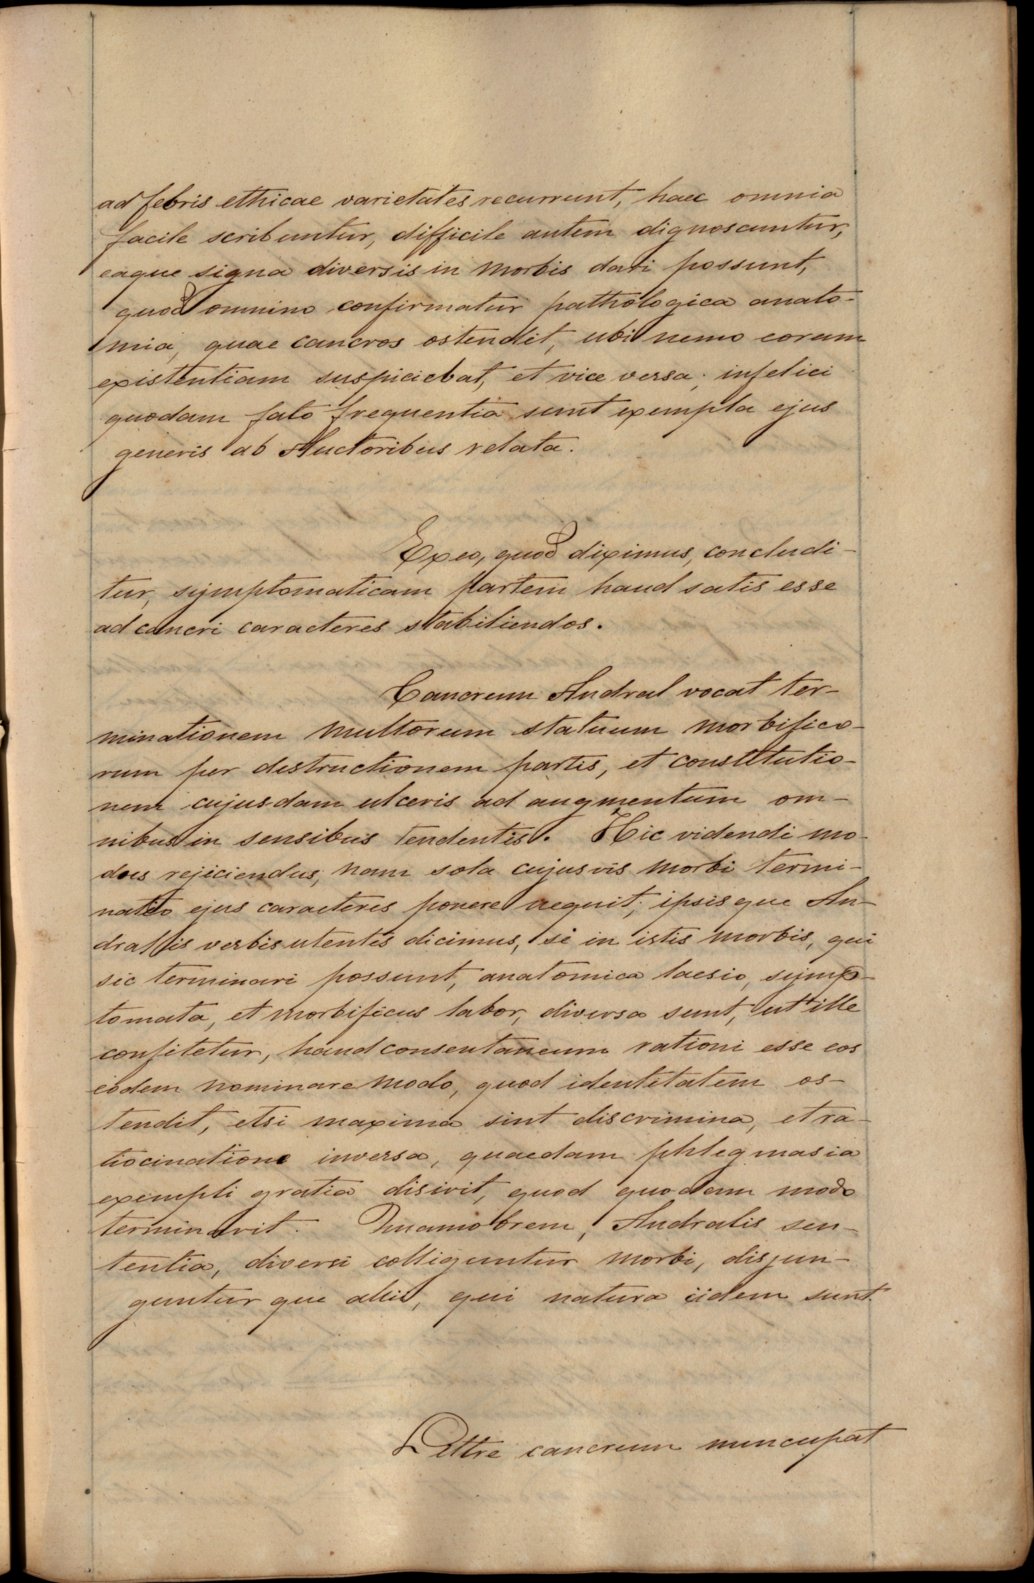 ad febris ethicae varietates recurrunt, haec omnia
facile scribuntur, difficile autem dignoscuntur,
eaque signa diversis in morbis dari possunt,
quod omnino confirmatur pathologica anato-
mia, quae cancros ostendit, ubi nemo eorum
existentiam suspiciebat, et vice versa; infelici
quodam fato frequentia sunt exempla ejus
generis ab Auctoribus relata.
Ex eo, quod diximus, concludi-
tur, symptomaticam partem haud satis esse
ad cancri caracteres stabiliendos.
Cancrum Andral vocat ter-
minationem multorum statuum morbifico-
rum per destructionem partis, et constitutio-
nem cujusdam ulceris ad augmentum om-
nibus in sensibus tendentis. Hic videndi mo-
dus rejiciendus, nam sola cujusvis morbi termi-
natio ejus caracteres ponere nequit; ipsisque An-
dralis verbis utentes dicimus, si in istis morbis, qui
sic terminari possunt, anatomica laesio, symp-
tomata, et morbificus labor, diversa sunt, ut ille
confitetur, haud consentaneum rationi esse eos
eodem nominare modo, quod identitatem os-
tendit, etsi maxima sint discrimina, et ra-
tiocinatione inversa, quaedam phlegmasia
exempli gratia disivit, quod quodam modo
terminavit. Quamobrem, Andralis sen-
tentia, diversi colliguntur morbi, disjun-
guntur que alii, qui natura iidem sunt
Littre cancrum nuncupat